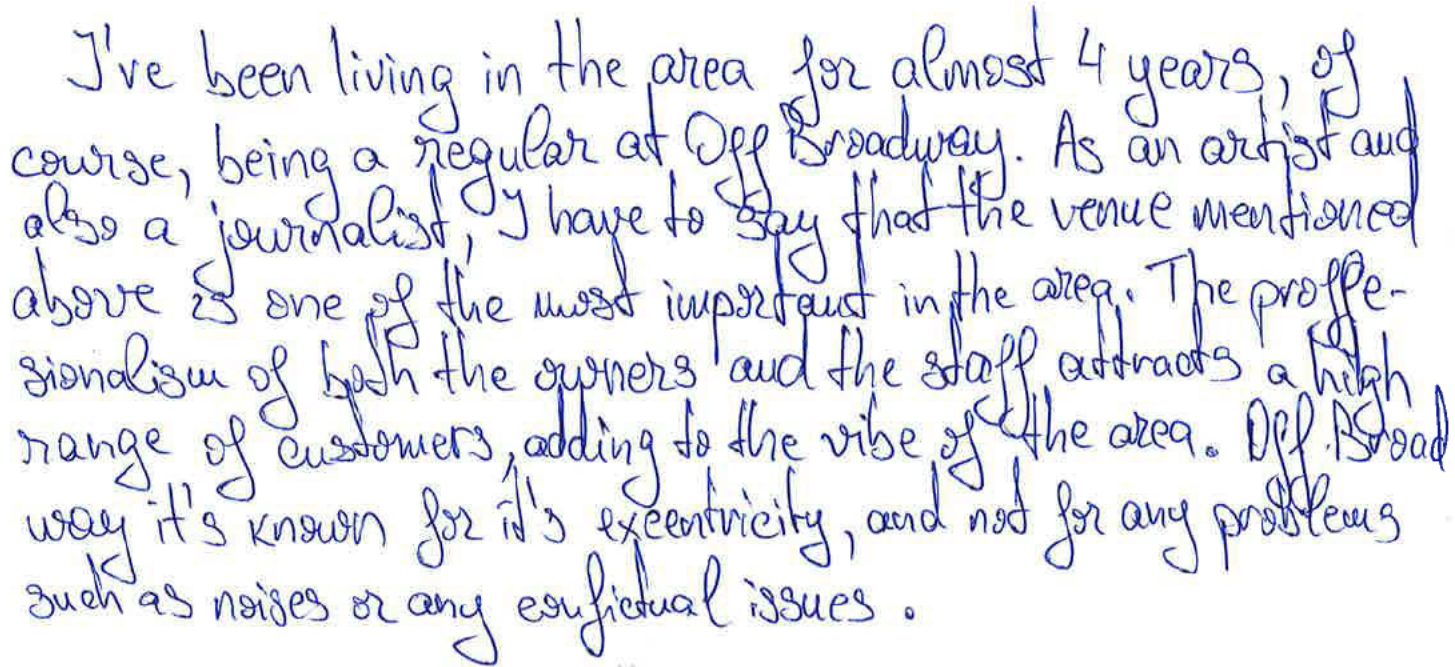 I've been living in the area for almost 4 years, of
course, being a regular at Off Broadway. As an artist and
also a journalist, I have to say that the venue mentioned
above is one of the most important in the area. The proffe-
sionalism of both the owners and the staff attracts a high
range of customers, adding to the vibe of the area. Off. Broad
way it's known for it's excentricity, and not for any problems
such as noises or any confictual issues.